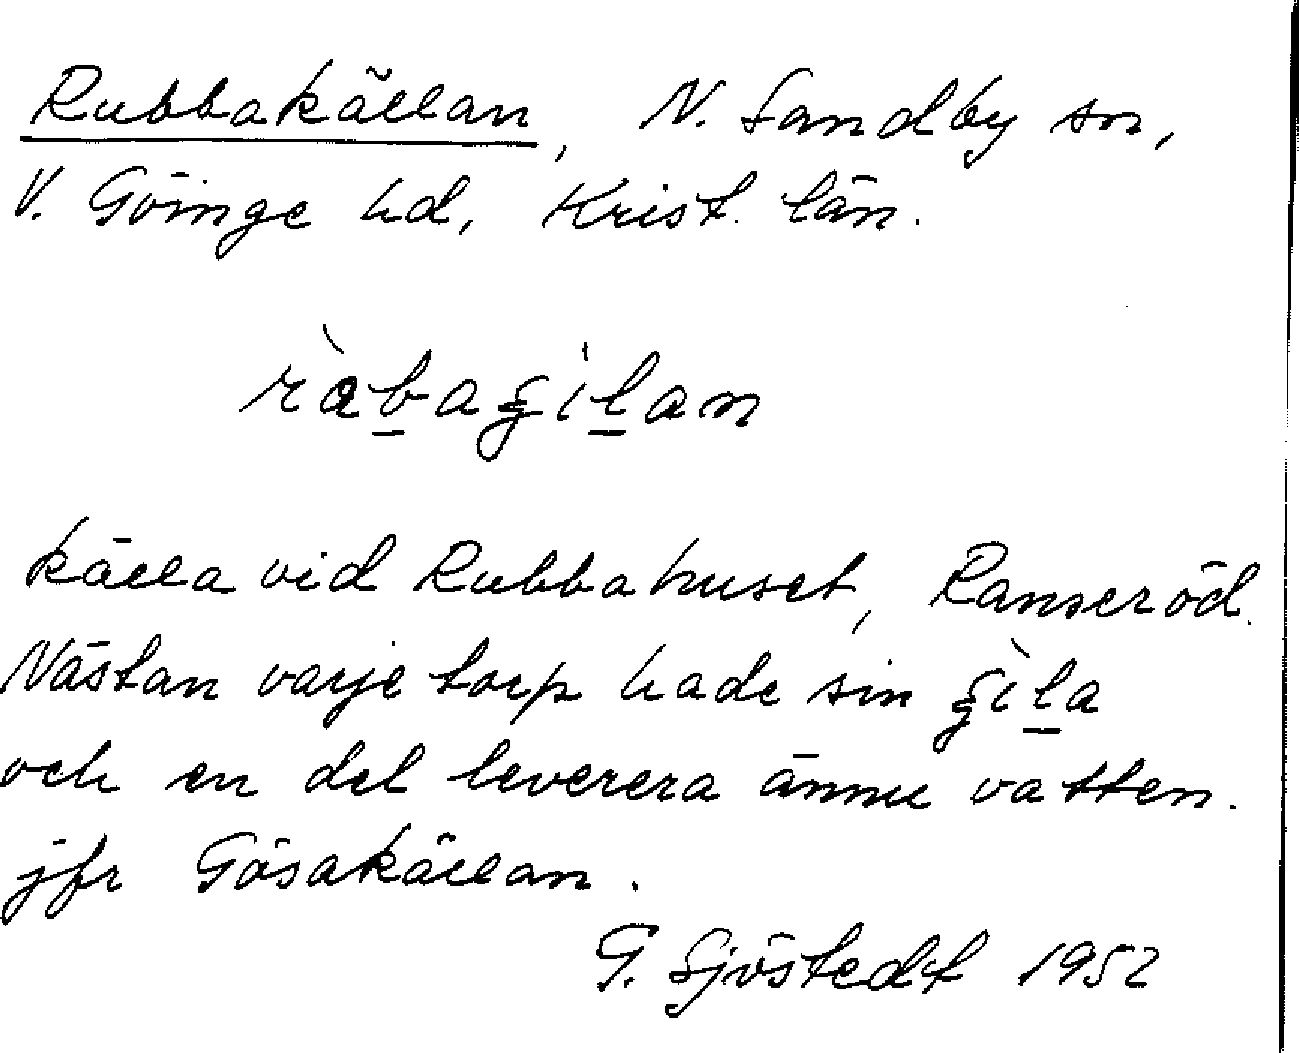 Rubbakällan, N. Sandby sn,
V. Göinge hd, Krist. län.
ràbaʂilan
källa vid Rubbahuset, Ranseröd.
Nästan varje torp hade sin ʂìla
och en del leverera ännu vatten.
jfr Gåsakällan.
G. Sjöstedt 1952